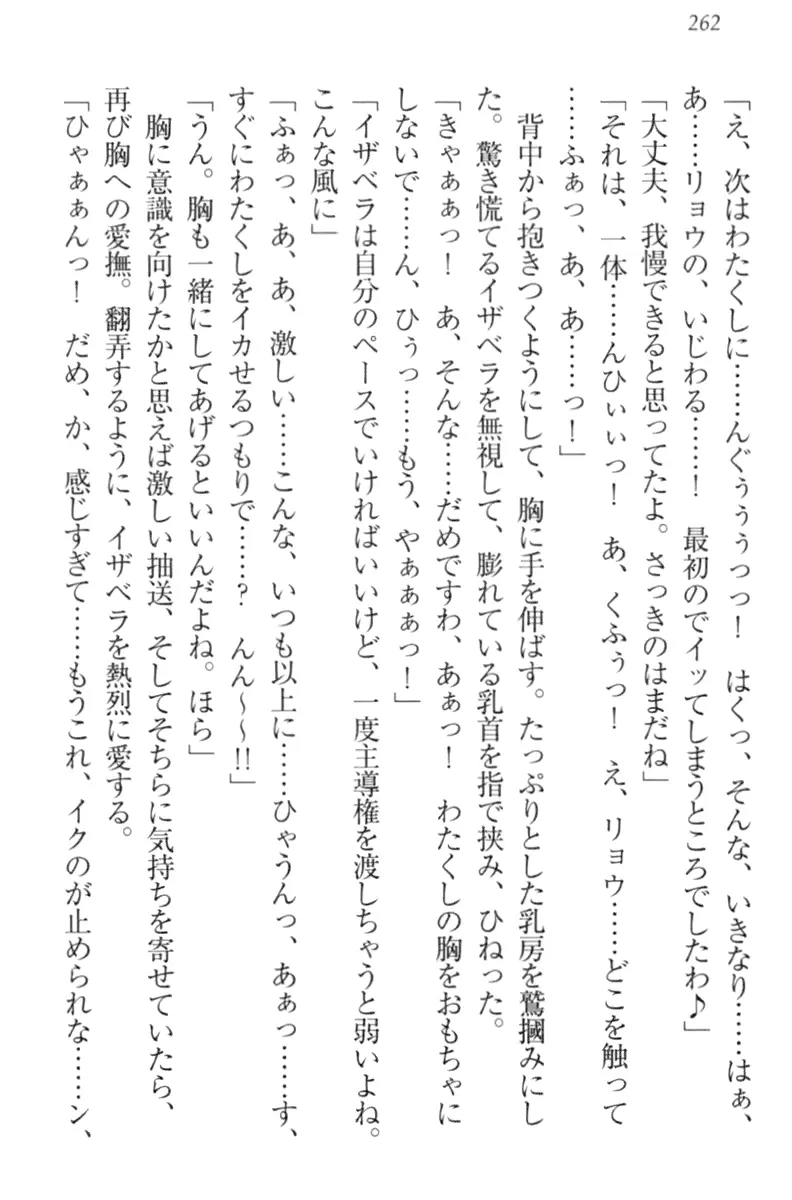 262
「え、次はわたくしに……んぐぅぅぅっっ！　はくっ、そんな、いきなり……はぁ、
あ……リョウの、いじわる……！　最初のでイッてしまうところでしたわ♪」
「大丈夫、我慢できると思ってたよ。さっきのはまだね」
「それは、一体……んひぃぃっ！　あ、くふぅっ！　え、リョウ……どこを触って
……ふぁっ、あ、あ……っ！」
　背中から抱きつくようにして、胸に手を伸ばす。たっぷりとした乳房を鷲摑みにし
た。驚き慌てるイザベラを無視して、膨れている乳首を指で挟み、ひねった。
「きゃぁぁっ！　あ、そんな……だめですわ、あぁっ！　わたくしの胸をおもちゃに
しないで……ん、ひぅっ……もう、やぁぁぁっ！」
「イザベラは自分のペースでいければいいけど、一度主導権を渡しちゃうと弱いよね。
こんな風に」
「ふぁっ、あ、あ、激しい……こんな、いつも以上に……ひゃうんっ、あぁっ……す、
すぐにわたくしをイカせるつもりで……？　んん～～!!」
「うん。胸も一緒にしてあげるといいんだよね。ほら」
　胸に意識を向けたかと思えば激しい抽送、そしてそちらに気持ちを寄せていたら、
再び胸への愛撫。翻弄するように、イザベラを熱烈に愛する。
「ひゃぁぁんっ！　だめ、か、感じすぎて……もうこれ、イクのが止められな……ン、